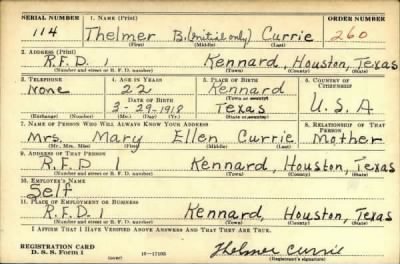 SERIAL NUMBER 1. NAME (Print) ORDER NUMBER
114 Thelmer B. (initial only) Currie 260
(First) (Middle) (Last)
2. ADDRESS (Print)
R.F.D. 1 Kennard, Houston, Texas
(Number and street or R. F. D. number) (Town) (County) (State)
3. TELEPHONE 4. AGE IN YEARS 5. PLACE OF BIRTH 6. COUNTRY OF CITIZENSHIP
None 22 Kennard
DATE OF BIRTH (Town or county)
3-29-1918 Texas U.S.A
(Exchange) (Number) (Mo.) (Day) (Yr.) (State or country)
7. NAME OF PERSON WHO WILL ALWAYS KNOW YOUR ADDRESS 8. RELATIONSHIP OF THAT PERSON
Mrs. Mary Ellen Currie Mother
(Mr., Mrs., Miss) (First) (Middle) (Last)
9. ADDRESS OF THAT PERSON
R.F.D 1 Kennard, Houston, Texas
(Number and street or R. F. D. number) (Town) (County) (State)
10. EMPLOYER'S NAME
Self
11. PLACE OF EMPLOYMENT OR BUSINESS
R.F.D. 1 Kennard, Houston, Texas
(Number and street or R. F. D. number) (Town) (County) (State)
I AFFIRM THAT I HAVE VERIFIED ABOVE ANSWERS AND THAT THEY ARE TRUE.
REGISTRATION CARD
D. S. S. Form 1 16-17105 Thelmer Currie